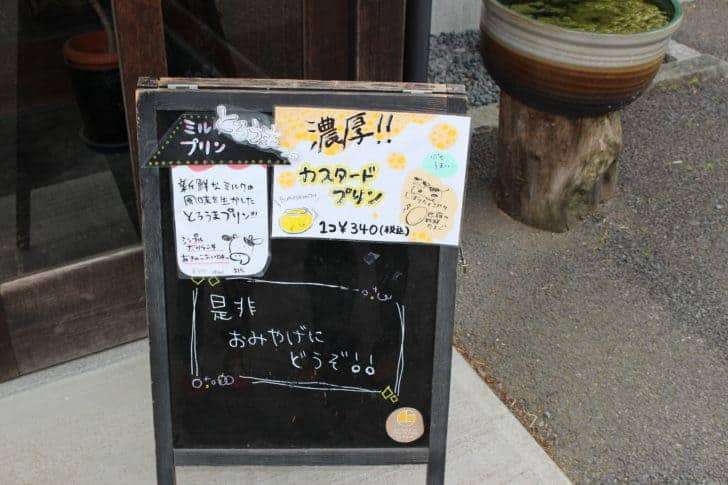 ミルク
プリン
とろうま
新鮮なミルクの
風味を生かした
とろうまプリン!!
シンプル
だからこそ
濃厚!!
カスタード
プリン
1コ¥340(税込)
是非
おみやげに
どうぞ!!